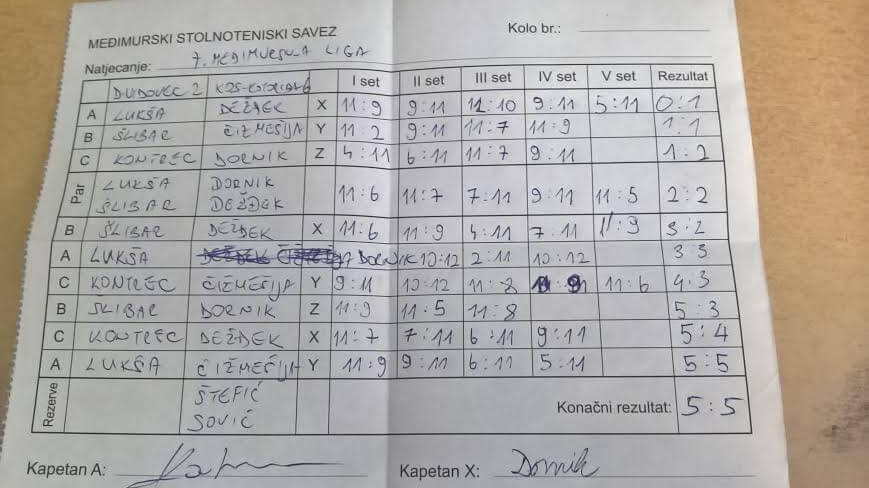 MEĐIMURSKI STOLNOTENISKI SAVEZ
Kolo br.:
Natjecanje: 7. MEĐIMURSKA LIGA
DUDOVEC 2 I set II set III set IV set V set Rezultat
A LUKŠA DEŽĐEK X 11:9 9:11 12:10 9:11 5:11 0:1
B ŠLIBAR ČIŽMEŠIJA Y 11:2 9:11 11:7 11:9 1:1
C KONTREC DORNIK Z 4:11 6:11 11:7 9:11 1:2
Par LUKŠA DORNIK 11:6 11:7 7:11 9:11 11:5 2:2
ŠLIBAR DEŽĐEK
B ŠLIBAR DEŽĐEK X 11:6 11:9 4:11 7:11 11:9 3:2
A LUKŠA DORNIK 10:12 2:11 10:12 3:3
C KONTREC ČIŽMEŠIJA Y 9:11 10:12 11:8 11:6 4:3
B ŠLIBAR DORNIK Z 11:9 11:5 11:8 5:3
C KONTREC DEŽĐEK X 11:7 7:11 6:11 9:11 5:4
A LUKŠA ČIŽMEŠIJA Y 11:9 9:11 6:11 5:11 5:5
Rezerve ŠTEFIĆ
SOVIĆ
Konačni rezultat: 5:5
Kapetan A: Kapetan X: Dornik